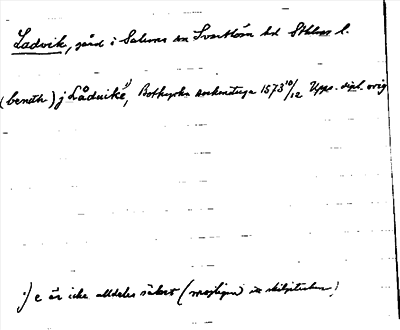 Ladvik, gård i Salems sn Svartlösa hd Sthlms l.
(bendh) j Låduike¹⁾, Botkyrka sockenstuga 1573 10/12 Upps. dipl. orig
¹⁾ e är icke alldeles säkert (möjligen